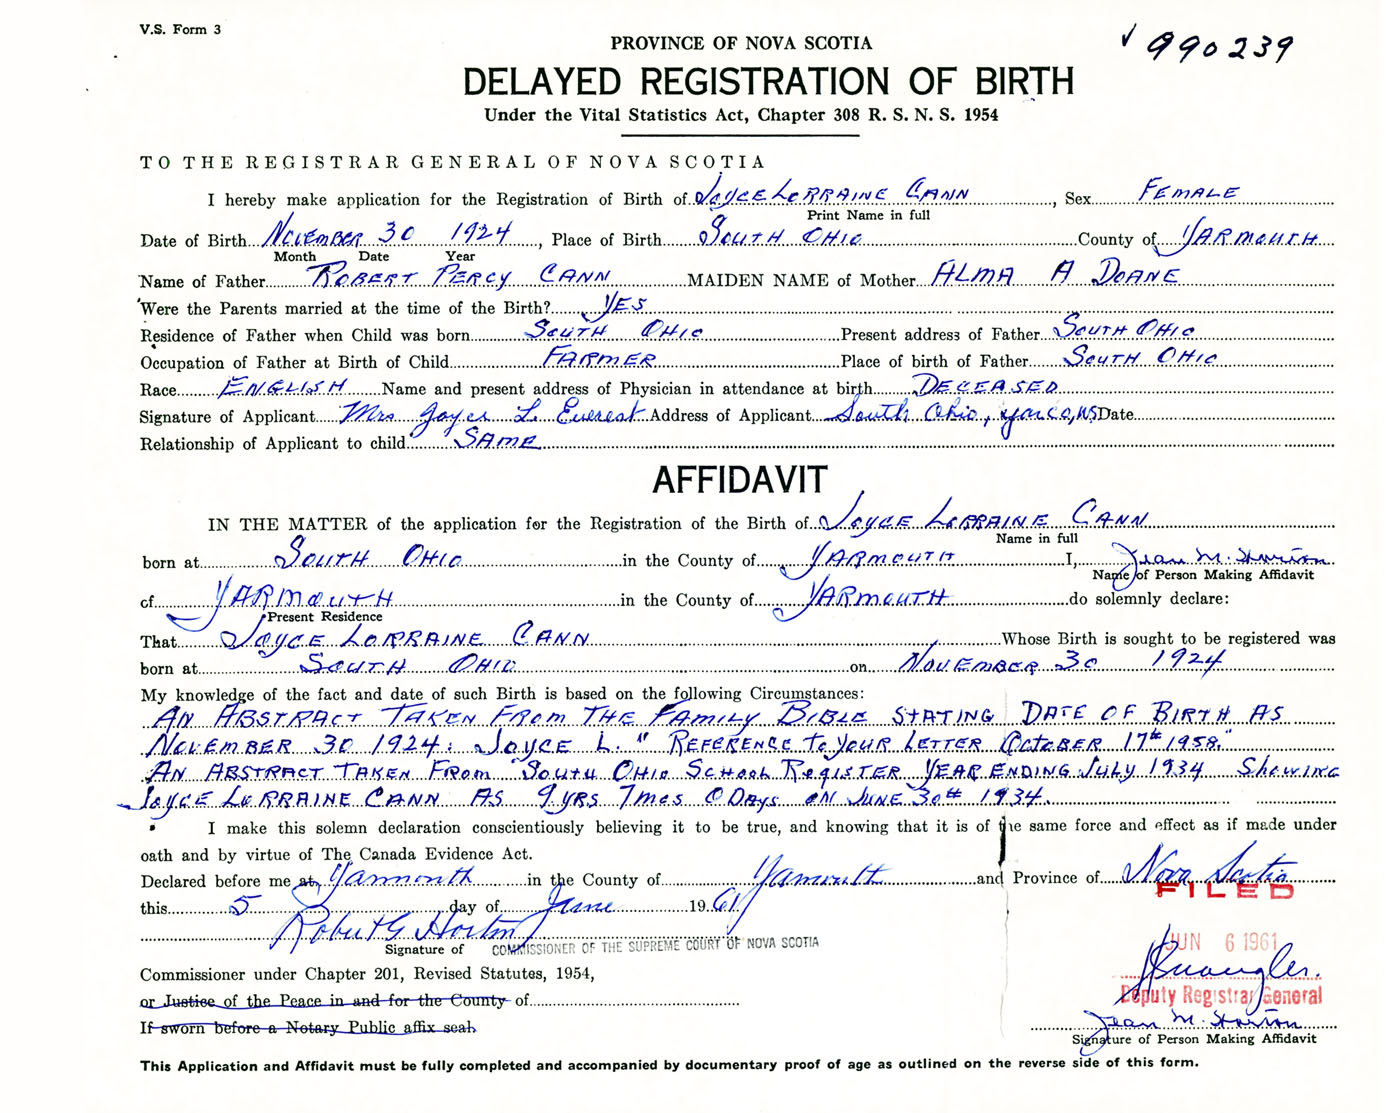 V.S. Form 3
✓ 990239
PROVINCE OF NOVA SCOTIA
DELAYED REGISTRATION OF BIRTH
Under the Vital Statistics Act, Chapter 308 R. S. N. S. 1954
TO THE REGISTRAR GENERAL OF NOVA SCOTIA
I hereby make application for the Registration of Birth of JOYCE LORRAINE CANN, Sex FEMALE
Print Name in full
Date of Birth NOVEMBER 30 1924, Place of Birth SOUTH OHIO County of YARMOUTH
Month Date Year
Name of Father ROBERT PERCY CANN MAIDEN NAME of Mother ALMA A DOANE
Were the Parents married at the time of the Birth? YES
Residence of Father when Child was born SOUTH OHIO Present address of Father SOUTH OHIO
Occupation of Father at Birth of Child FARMER Place of birth of Father SOUTH OHIO
Race ENGLISH Name and present address of Physician in attendance at birth DECEASED
Signature of Applicant Mrs Joyce L. Everest Address of Applicant South Ohio, Yar Co, NS Date
Relationship of Applicant to child SAME
AFFIDAVIT
IN THE MATTER of the application for the Registration of the Birth of JOYCE LORRAINE CANN
Name in full
born at SOUTH OHIO in the County of YARMOUTH I, Jean M. Horton
Name of Person Making Affidavit
of YARMOUTH in the County of YARMOUTH do solemnly declare:
Present Residence
That JOYCE LORRAINE CANN Whose Birth is sought to be registered was
born at SOUTH OHIO on NOVEMBER 30 1924
My knowledge of the fact and date of such Birth is based on the following Circumstances:
AN ABSTRACT TAKEN FROM THE FAMILY BIBLE STATING DATE OF BIRTH AS
NOVEMBER 30 1924: JOYCE L. " REFERENCE to YOUR LETTER OCTOBER 17th 1958."
AN ABSTRACT TAKEN FROM "SOUTH OHIO SCHOOL REGISTER YEAR ENDING JULY 1934 SHOWING
JOYCE LORRAINE CANN AS 9 YRS 7 MOS 0 DAYS ON JUNE 30th 1934.
I make this solemn declaration conscientiously believing it to be true, and knowing that it is of the same force and effect as if made under
oath and by virtue of The Canada Evidence Act.
Declared before me at Yarmouth in the County of Yarmouth and Province of Nova Scotia
FILED
this 5 day of June 1961
JUN 6 1961
Robert G Horton
Signature of COMMISSIONER OF THE SUPREME COURT OF NOVA SCOTIA
Commissioner under Chapter 201, Revised Statutes, 1954,
Deputy Registrar General
or Justice of the Peace in and for the County of
Jean M. Horton
If sworn before a Notary Public affix seal.
Signature of Person Making Affidavit
This Application and Affidavit must be fully completed and accompanied by documentary proof of age as outlined on the reverse side of this form.